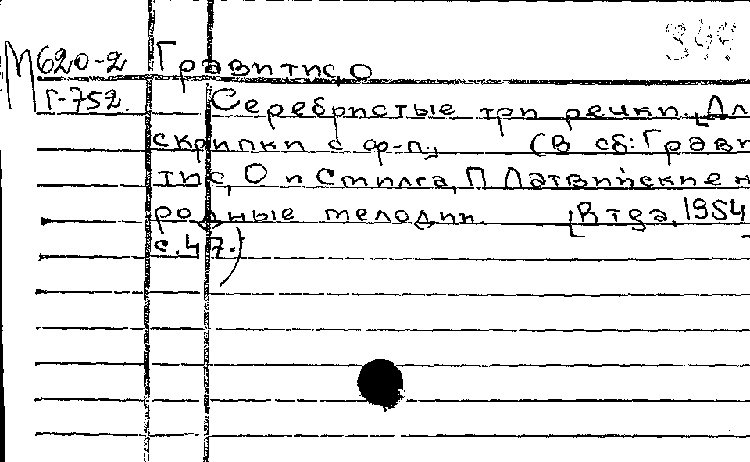 М620-2 Гравитис, О 344
Г-752.
Серебристые три речки. [Дл
скрипки с ф-п.] (В сб: Грави
тис, О и Стилса, П Латвийские н
родные мелодии. [Рига, 1954
с.47.)